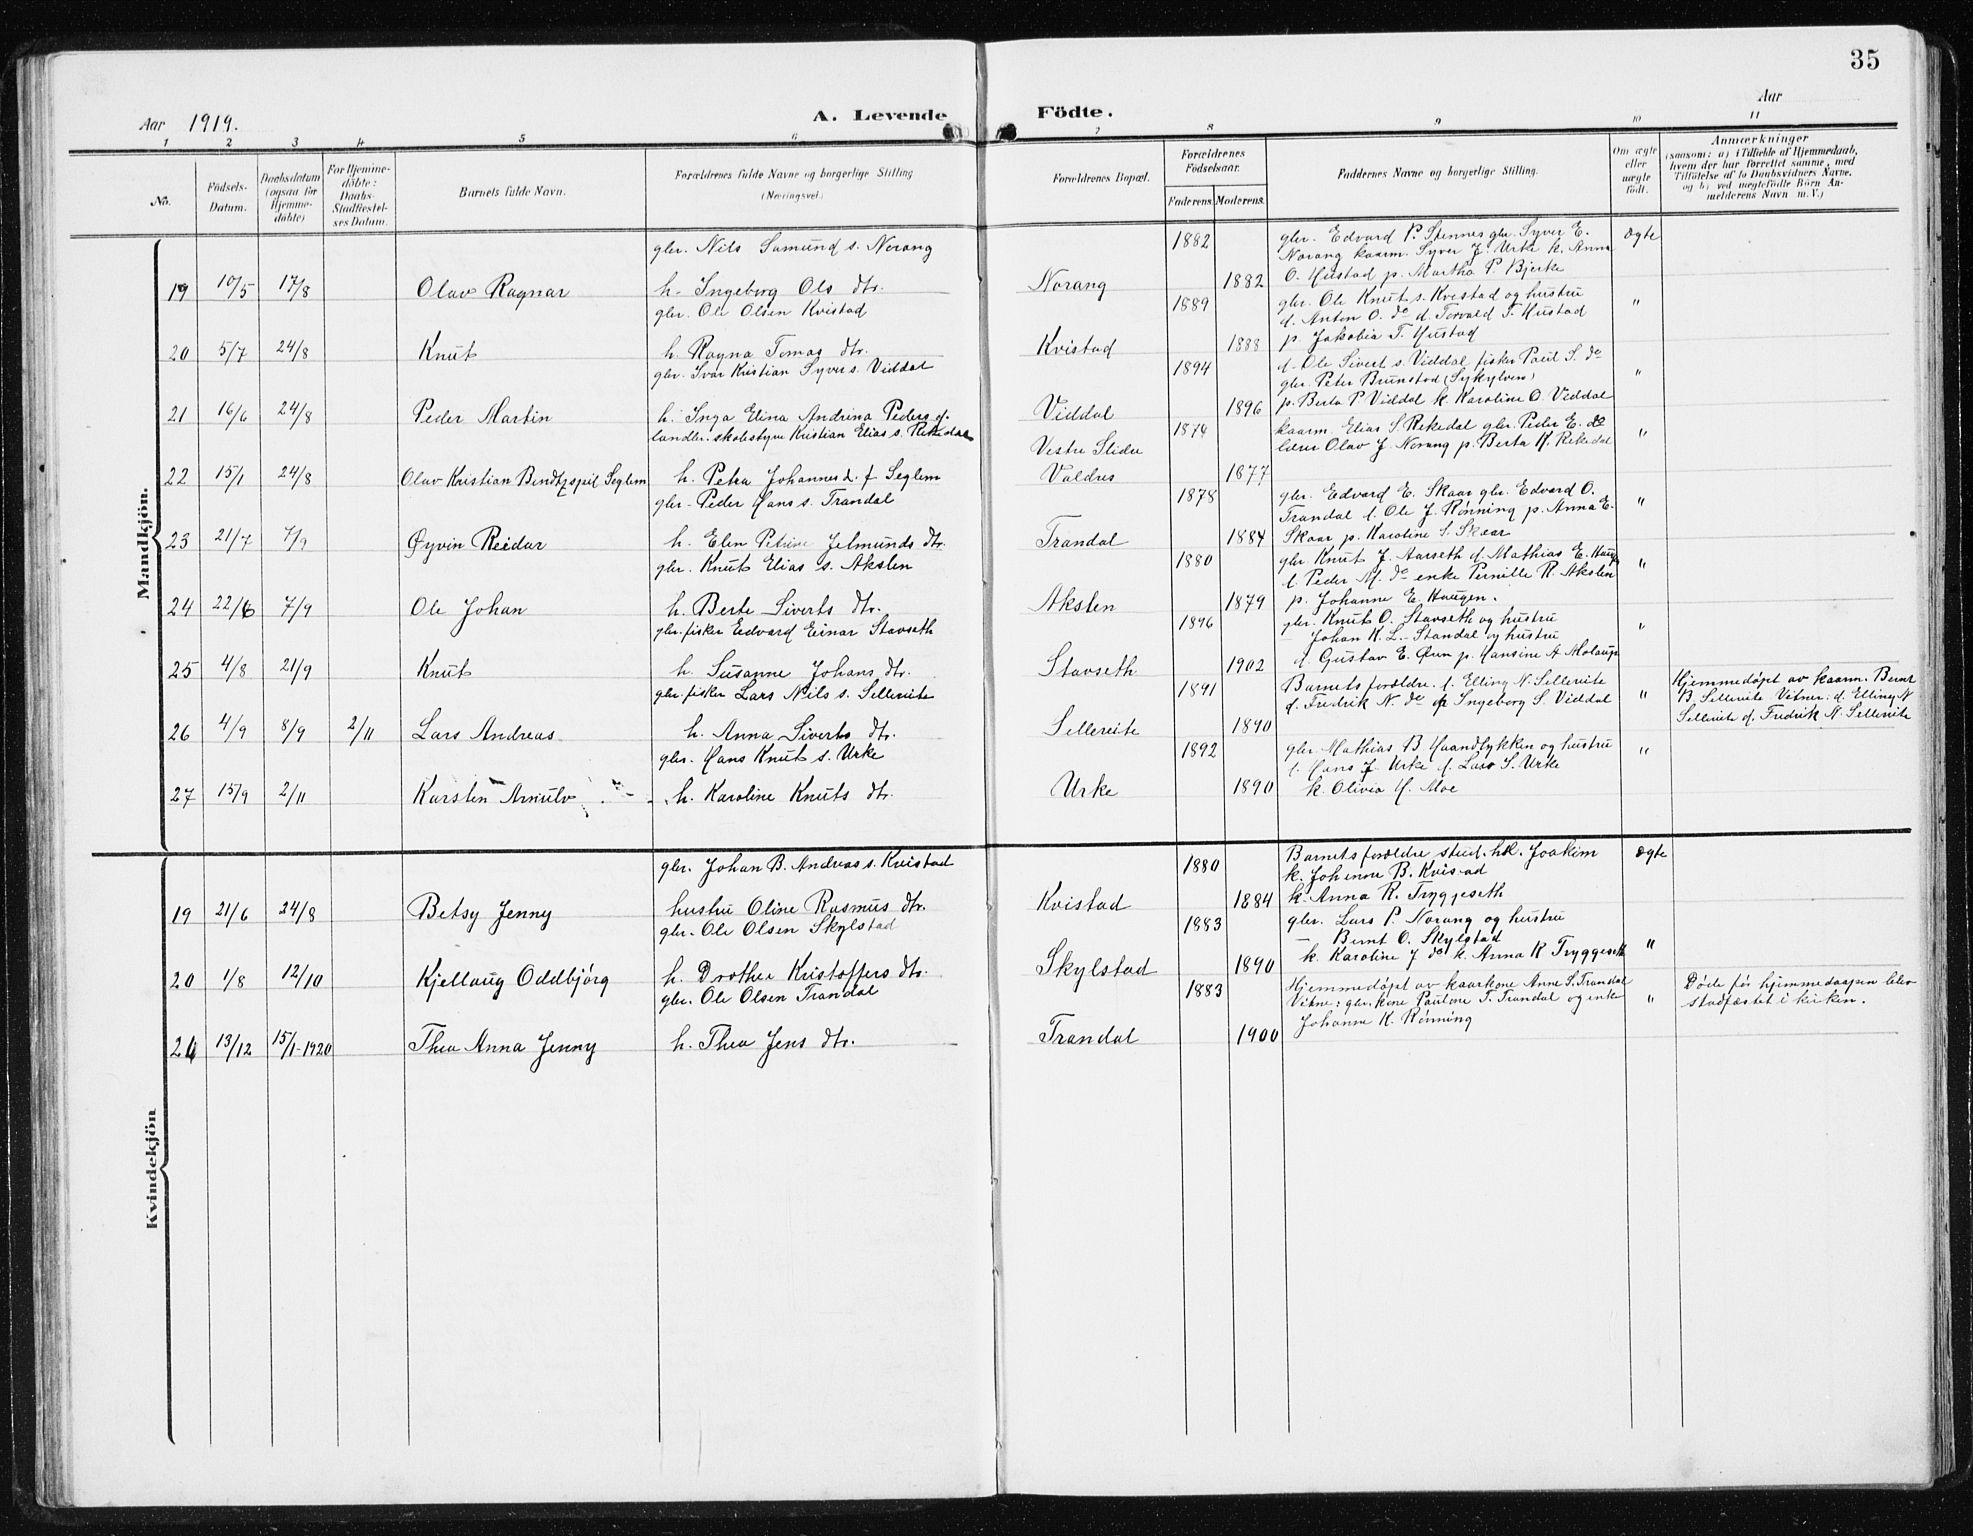 35
Aar 1919. A. Levende Födte. Aar
1 2 3 4 5 6 7 8 9 10 11
No. Födsels-Datum. Daabsdatum (ogsaa for Hjemmedöbte) For Hjemmedöbte: Daabs-Stadfæstelses Datum. Barnets fulde Navn. Forældrenes fulde Navne og borgerlige Stilling (Næringsvei.) Forældrenes Bopæl. Forældrenes Födselsaar. Faderens. Moderens. Faddernes Navne og borgerlige Stilling. Om ægte eller uægte födt. Anmærkninger (saasom: a) i Tilfælde af Hjemmedaab, hvem der har forrettet samme, med Tilföielse af to Daabsvidners Navne, og b) ved uægtefödte Börn Anmelderens Navn m. V.)
Mandkjön.
gbr. Nils Samund s. Norang 1882 gbr. Edvard P. Stennes gbr. Syver E. Ægte
Norang kaarm. Syver J. Urke k. Anna
19 10/5 17/8 Olav Ragnar h. Ingeborg Ols dtr. Norang 1882 O. Hustad p. Martha P. Bjerke
gbr. Ole Olsen Kvistad 1889 gbr. Ole Knut s. Kvistad og hustru "
d. Anton O. do d. Torvald T. Hustad
20 5/7 24/8 Knut h. Ragna Tomas dtr. Kvistad 1888 p. Jakobia T. Hustad
gbr. Ivar Kristian Syver s. Viddal 1894 d. Ole Sivert s. Viddal fisker Paul S. do "
gbr. Peter Brunstad (Sykylven)
21 16/6 24/8 Peder Martin h. Inga Elina Andrina Peders d. Viddal 1896 p. Berta P. Viddal k. Karoline O. Viddal
landbr. skolestyrer Kristian Elias s. Rekedal Vestre Slidre 1874 kaarm. Elias S. Rekedal gbr. Peder E. do "
lærer Olav J. Norang p. Berta K. Rekedal
22 15/1 24/8 Olav Kristian Seglem h. Petra Johannes d. f. Seglem Valdres 1877
gbr. Peder Hans s. Trandal 1878 gbr. Edvard E. Skaar gbr. Edvard O. "
Trandal d. Ole J. Rønning p. Anna E.
23 21/7 7/9 Øyvin Reidar h. Elen Petrine Jelmunds dtr. Trandal 1884 Skaar p. Karoline S. Skaar
gbr. Knut Elias s. Akslen 1880 gbr Knut J. Aarseth d. Mathias E. Haugen "
d. Peder M. do enke Pernille R. Akslen
24 22/6 7/9 Ole Johan h. Berte Siverts dtr. Akslen 1879 p. Johanne E. Haugen.
gbr. fisker Edvard Einar Stavseth 1896 gbr. Knut O. Stavseth og hustru "
— Johan K. L. Standal og hustru
25 4/8 21/9 Knut h. Susanne Johans dtr. Stavseth 1902 d. Gustav E. Øen p. Hansine A. Molaup
gbr. fisker Lars Nils s. Sellereite 1891 Barnets forældre. d. Elling N. Sellereite " Hjemmedøpt av kaarm. Bernt
d. Fredrik N. do p Ingeborg S. Viddal B. Sellereite Vitner: d. Elling N
26 4/9 8/9 2/11 Lars Andreas h. Anna Siverts dtr. Sellereite 1890 Sellereite d. Fredrik N. Sellereite
gbr. Hans Knut s. Urke 1892 gbr Mathias B. Haandlykken og hustru "
d. Hans J. Urke d. Lars S. Urke
27 15/9 2/11 Karsten Arnulv h. Karoline Knuts dtr. Urke 1890 k. Olivia H. Moe
Kvindekjön
gbr. Johan B. Andreas s. Kvistad 1880 Barnets forældre stud. hk. Joakim Ægte
k. Johanne B. Kvistad
19 21/6 24/8 Betsy Jenny hustru Oline Rasmus dtr. Kvistad 1884 k. Anna R. Tryggeseth
gbr. Ole Olsen Skylstad 1883 gbr. Lars P. Norang og hustru "
— Bernt O. Skylstad
20 1/8 12/10 Kjellaug Oddbjørg h. Drothea Kristoffers dtr. Skylstad 1890 k. Karoline J do k. Anna R Tryggeseth
gbr. Ole Olsen Trandal 1883 Hjemmedøpt av kaarkone Anne S. Trandal " Døde før hjemmedaapen blev
Vitne: gbr. kone Pauline T. Trandal og enke stadfæstet i kirken.
21 13/12 15/1-1920 Thea Anna Jenny h. Thea Jens dtr. Trandal 1900 Johanne K. Rønning